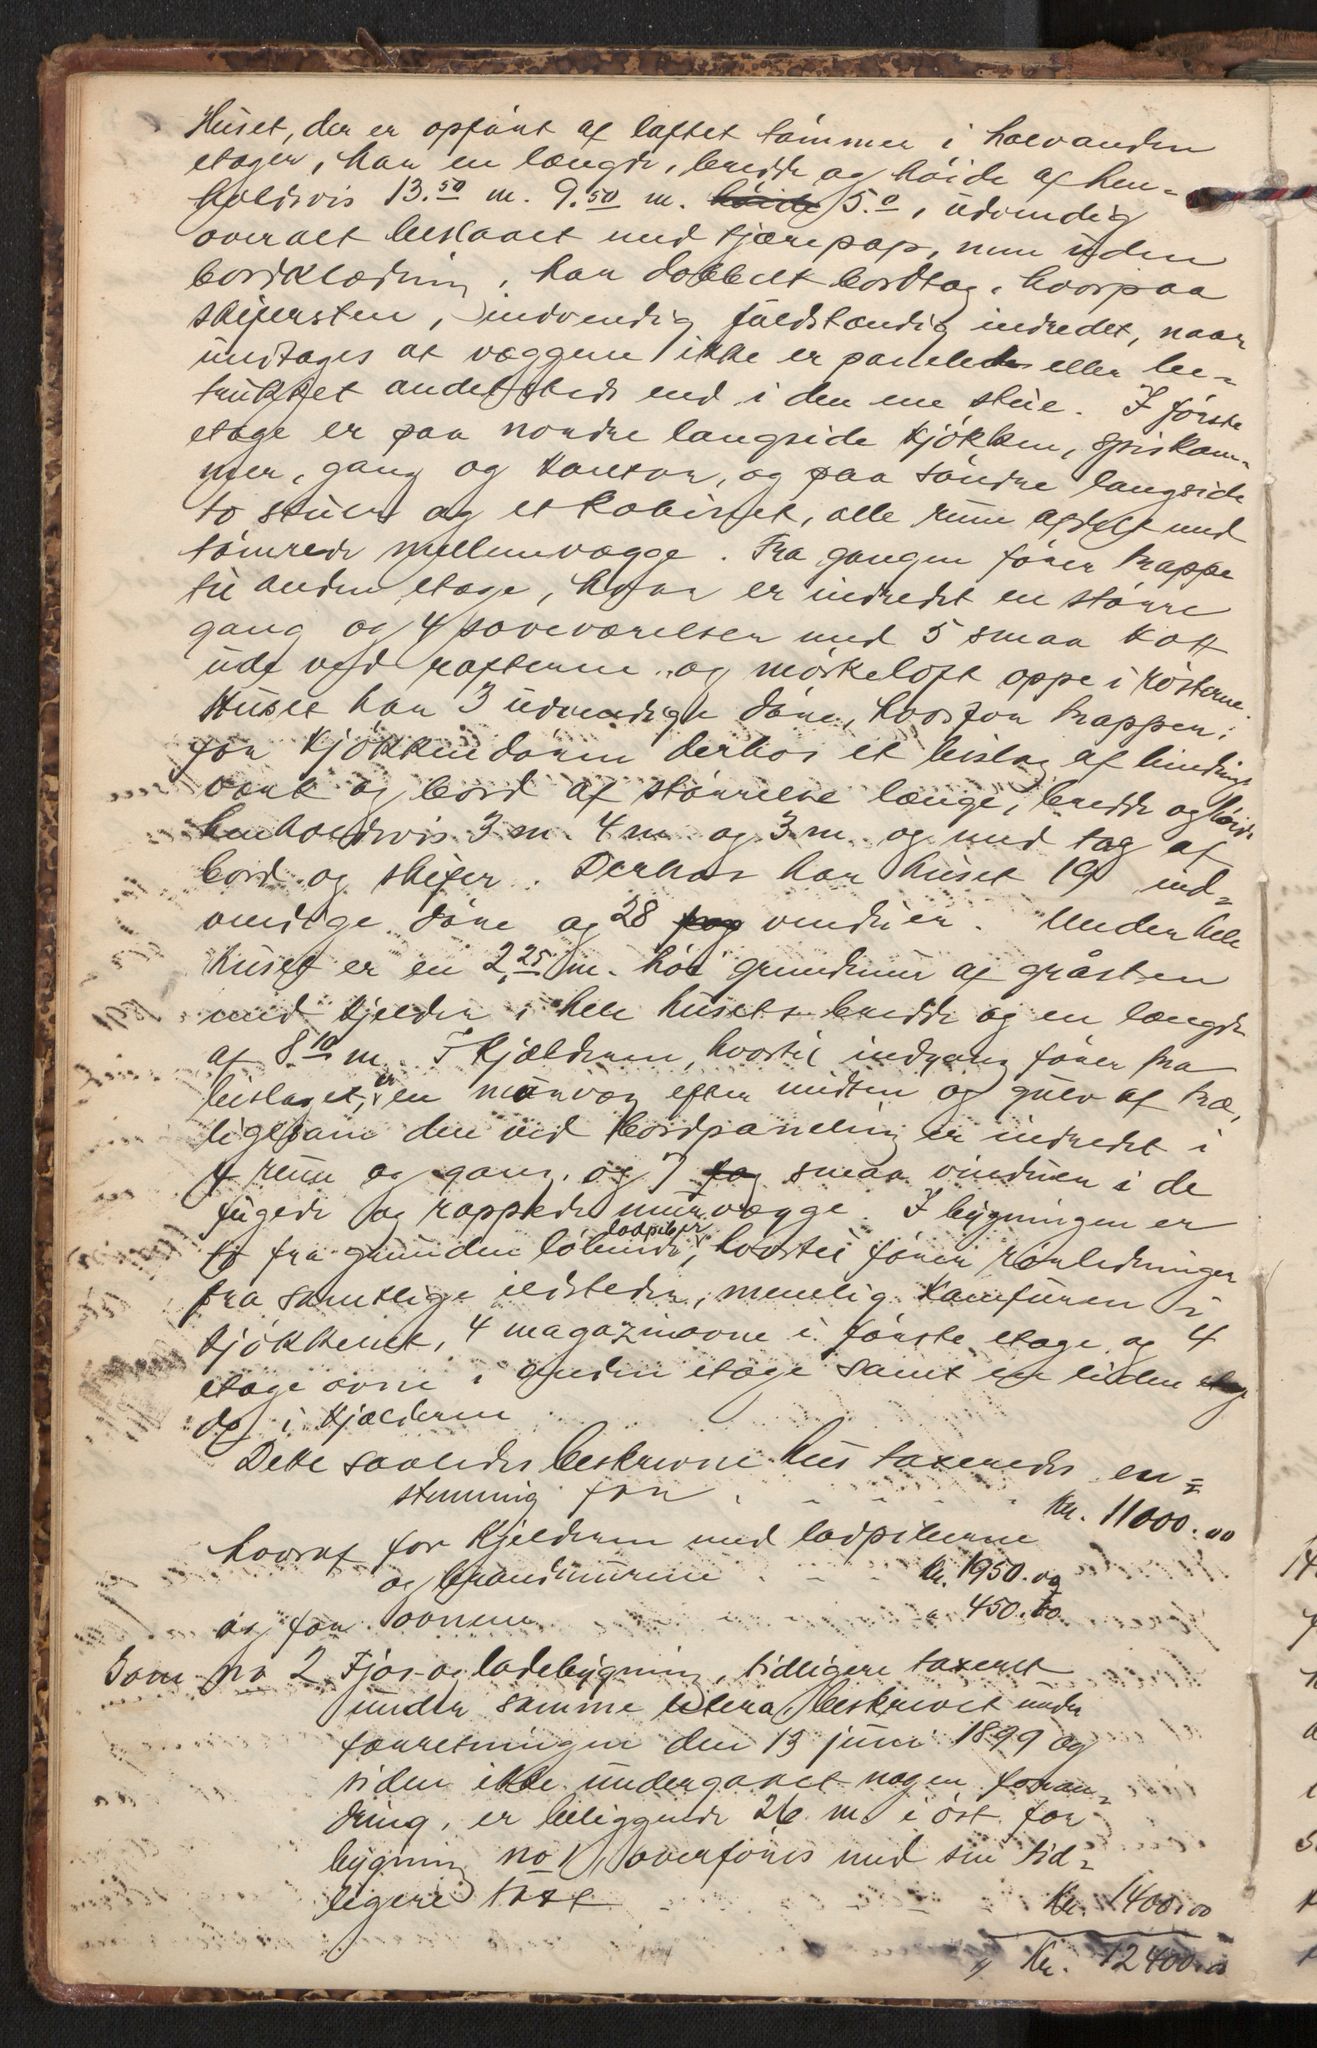 Huset, der er opført af laftet tømmer i halvanden
etager, har en længde, bredde og høide af hen-
holdsvis 13.50 m. 9.50 m. høide 5.0, udvendig
overalt beslaaet med tjærepap, men uden
bordklædning, har dobbelt bordtag, hvorpaa
skifersten, indvendig fuldstændig indredet, naar
undtages at væggene ikke er panelede eller be-
trukket andetsteds end i den ene stue. I første
etage er paa nordre langside kjøkken, spiskam-
mer, gang og kontor, og paa søndre langside
to stuer og et kabinet, alle rum afdelt med
tømrede mellemvægge. Fra gangen fører trappe
til anden etage, hvor er indredet en større
gang og 4 soveværelser med 5 smaa kott
ude ved rafterne og mørkeloft oppe i røsterne.
Huset har 3 udvendige døre, hvorfor trapper;
for kjøkkendøren derhos et bislag af bindings
værk og bord af størrelse længe, bredde og høide
henholdsvis 3 m. 4 m og 3 m. og med tag af
bord og skifer. Derhos har huset 19 ind-
vendige døre og 28 fag vinduer. Under hele
huset er en 2.25 m. høi grundmur af gråsten
med kjelder i hele husets bredde og en længde
af 8.10 m. I kjælderen, hvortil indgang fører fra
bislaget, er en murvæg efter midten og gulv af træ,
ligesom den ved bordpaneling er indredet i
4 rum og gang, og 7 fag smaa vinduer i de
fugede og rappede murvægge. I bygningen er
to fra grunden løbende ladpiber, hvortil fører rørledninger
fra samtlige ildsteder, nemlig komfuren i
kjøkkenet, 4 magazinovne i første etage og 4
etageovne i anden etage samt en liden etage
do i kjælderen.
Dette saaledes beskrevne hus taxeredes en-
stemmig for . . . . . Kr. 11000.00
hvoraf for kjelderen med ladpiberne
og brandmurene . . . kr. 1950. og
og for ovnene " 450.00
Som no 2 Fjøs- og ladebygning, tidligere taxeret
under samme litera, beskrevet under
forretningen den 13 juni 1899 og
siden ikke undergaaet nogen foran-
dring, er beliggende 26 m. i øst for
bygning no 1, overføres med sin tid-
ligere taxt Kr. 1400.00
" Kr. 12400.00